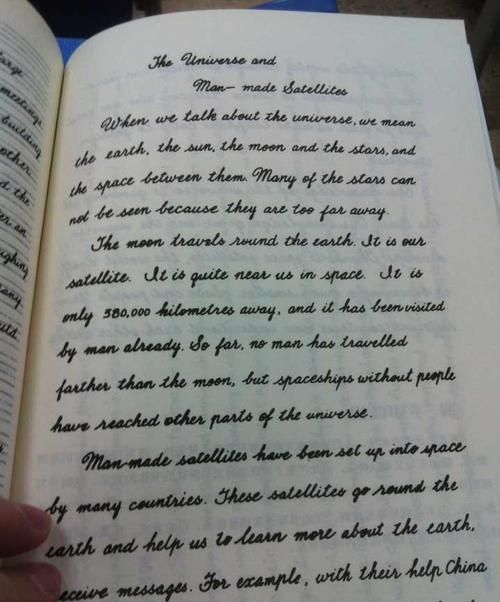 meetings
building
other.
The Universe and
Man-made Satellites
When we talk about the universe, we mean
the earth, the sun, the moon and the stars, and
the space between them. Many of the stars can
not be seen because they are too far away.
The moon travels round the earth. It is our
satellite. It is quite near us in space. It is
only 380,000 kilometres away, and it has been visited
by man already. So far, no man has travelled
farther than the moon, but spaceships without people
have reached other parts of the universe.
Man-made satellites have been set up into space
by many countries. These satellites go round the
earth and help us to learn more about the earth,
eceive messages. For example, with their help China